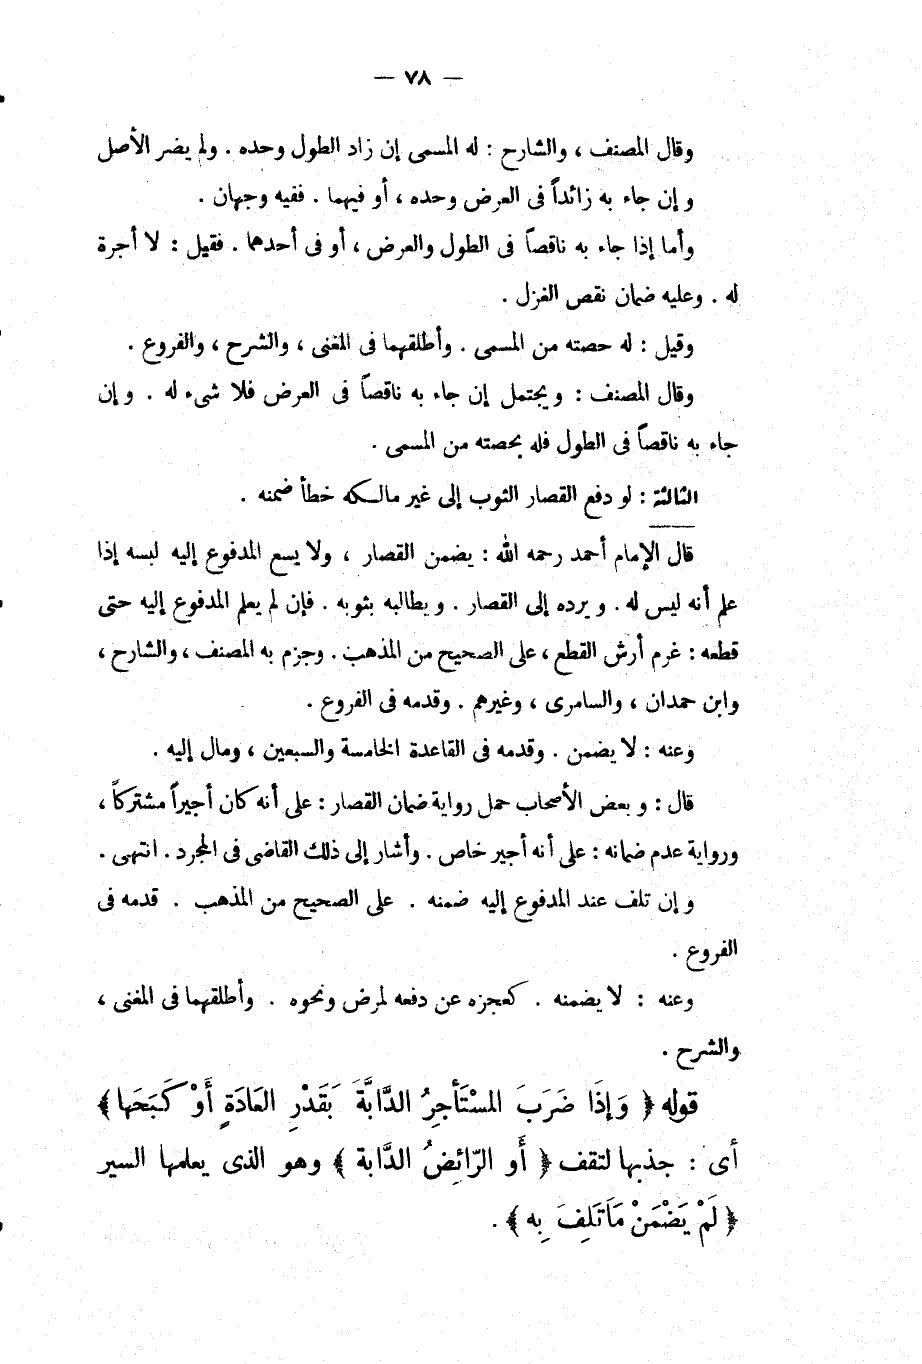 — ٧٨ —
وقال المصنف ، والشارح : له المسمى إن زاد الطول وحده . ولم يضر الأصل
و إن جاء به زائداً فى العرض وحده ، أو فيهما . ففيه وجهان .
وأما إذا جاء به ناقصاً فى الطول والعرض ، أو فى أحدهما . فقيل : لا أجرة
له . وعليه ضمان نقص الغزل .
وقيل : له حصته من المسمى . وأطلقهما فى المغنى ، والشرح ، والفروع .
وقال المصنف : ويحتمل إن جاء به ناقصاً فى العرض فلا شىء له . وإن
جاء به ناقصاً فى الطول فله بحصته من المسمى .
الثالثة : لو دفع القصار الثوب إلى غير مالكه خطأ ضمنه .
قال الإمام أحمد رحمه الله : يضمن القصار ، ولا يسع المدفوع إليه لبسه إذا
علم أنه ليس له . ويرده إلى القصار . ويطالبه بثوبه . فإن لم يعلم المدفوع إليه حتى
قطعه : غرم أرش القطع ، على الصحيح من المذهب . وجزم به المصنف ، والشارح ،
وابن حمدان ، والسامرى ، وغيرهم . وقدمه فى الفروع .
وعنه : لا يضمن . وقدمه فى القاعدة الخامسة والسبعين ، ومال إليه .
قال : وبعض الأصحاب حمل رواية ضمان القصار : على أنه كان أجيراً مشتركاً ،
ورواية عدم ضمانه : على أنه أجير خاص . وأشار إلى ذلك القاضى فى المجرد . انتهى .
وإن تلف عند المدفوع إليه ضمنه . على الصحيح من المذهب . قدمه فى
الفروع .
وعنه : لا يضمنه . كعجزه عن دفعه لمرض ونحوه . وأطلقهما فى المغنى ،
والشرح .
قوله ﴿ وَإِذَا ضَرَبَ المسْتَأجِرُ الدَّابَّةَ بَقَدْرِ العَادَةِ أَوْ كَبَحَها ﴾
أى : جذبها لتقف ﴿ أَو الرّائِضُ الدَّابة ﴾ وهو الذى يعلمها السير
﴿ لَمْ يَضْمَنْ مَاَتَلِفَ بِهِ ﴾ .